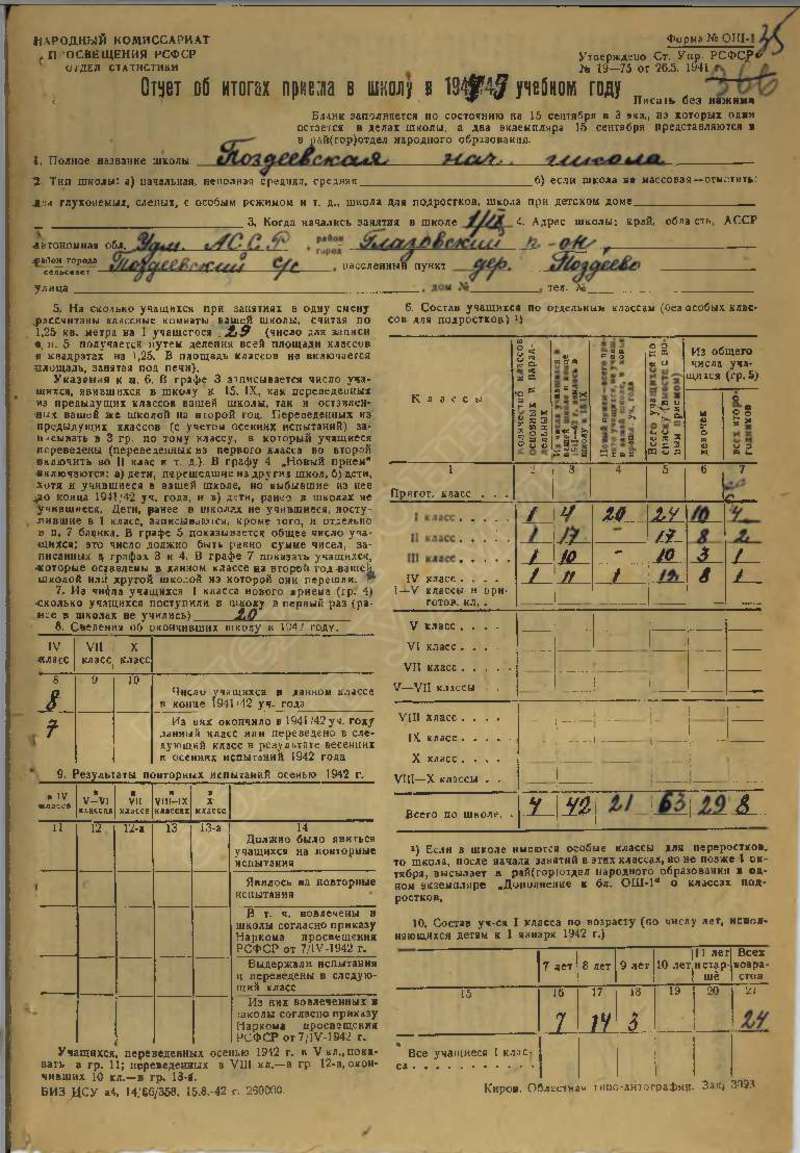 НАРОДНЫЙ КОМИССАРИАТ
ПРОСВЕЩЕНИЯ РСФСР
ОТДЕЛ СТАТИСТИКИ
Форма № ОШ-1
Утверждено Ст. Упр. РСФСР
№ 19—75 от 26.5. 1941 г.
Отчет об итогах приема в школу в учебном году
Писать без нажима
Бланк заполняется по состоянию на 15 сентября в 3 экз., из которых один
остается в делах школы, а два экземпляра 15 сентября представляются в
в рай(гор)отдел народного образования.
1. Полное название школы Поздеевская нач. школа
2. Тип школы: а) начальная, неполная средняя, средняя б) если школа не массовая—отметить:
для глухонемых, слепых, с особым режимом и т. д., школа для подростков, школа при детском доме
3. Когда начались занятия в школе 1/IX 4. Адрес школы: край, область, АССР
автономная обл. Удм. АССР, район город Глазовский р-он,
район города сельсовет Поздеевский с/с, населенный пункт дер. Поздеево
улица , дом № , тел. №
5. На сколько учащихся при занятиях в одну смену
рассчитаны классные комнаты вашей школы, считая по
1,25 кв. метра на 1 учащегося 29 (число для записи
в п. 5 получается путем деления всей площади классов
в квадратах на 1,25. В площадь классов не включается
площадь, занятая под печи).
Указания к п. 6. В графе 3 записывается число уча-
щихся, явившихся в школу к 15. IX, как переведенных
из предыдущих классов вашей школы, так и оставлен-
ных вашей же школой на второй год. Переведенных из
предыдущих классов (с учетом осенних испытаний) за-
писывать в 3 гр. по тому классу, в который учащиеся
переведены (переведенных из первого класса во второй
включить во II класс и т. д.). В графу 4 „Новый прием"
включаются: а) дети, перешедшие из других школ, б) дети,
хотя и учившиеся в вашей школе, но выбывшие из нее
до конца 1941/42 уч. года, и в) дети, ранее в школах не
учившиеся. Дети, ранее в школах не учившиеся, посту-
пившие в 1 класс, записываются, кроме того, и отдельно
в п. 7 бланка. В графе 5 показывается общее число уча-
щихся; это число должно быть равно сумме чисел, за-
писанных в графах 3 и 4. В графе 7 показать учащихся,
которые оставлены в данном классе на второй год вашей
школой или другой школой из которой они перешли.
7. Из числа учащихся 1 класса нового приема (гр. 4)
сколько учащихся поступили в школу в первый раз (ра-
нее в школах не учились) 20
8. Сведения об окончивших школу в 1942 году.
IV класс VII класс X класс
8 9 10
8 Число учащихся в данном классе
в конце 1941/42 уч. года
7 Из них окончило в 1941/42 уч. году
данный класс или переведено в сле-
дующий класс в результате весенних
и осенних испытаний 1942 года
9. Результаты повторных испытаний осенью 1942 г.
в IV классе в V—VI классах в VII классе в VIII—IX классах в X классе
11 12 12-а 13 13-а 14
Должно было явиться
учащихся на повторные
испытания
Явилось на повторные
испытания
В т. ч. вовлечены в
школы согласно приказу
Наркома просвещения
РСФСР от 7/IV-1942 г.
Выдержали испытания
и переведены в следую-
щий класс
Из них вовлеченных в
школы согласно приказу
Наркома просвещения
РСФСР от 7/IV-1942 г.
Учащихся, переведенных осенью 1942 г. в V кл., пока-
зать в гр. 11; переведенных в VIII кл.—в гр 12-а, окон-
чивших 10 кл.—в гр. 13-а.
БИЗ ЦСУ 15.8.-42 г. 260000.
6. Состав учащихся по отдельным классам (без особых клас-
сов для подростков) ¹)
Классы
Количество классов основных и параллельных
Всего учащихся по списку (вместе с новым приемом)
Из общего числа уча-
щихся (гр. 5)
девочек
всех второ-
годников
1 2 3 4 5 6 7
Пригот. класс . . .
I класс . . . . . 1 4 20 24 10 4
II класс . . . . . 1 17 - 17 8 2
III класс . . . . . 1 10 - 10 3 1
IV класс . . . . . 1 11 1 12 8 1
I—V классы и при-
готов. кл. .
V класс . . . .
VI класс . . . .
VII класс . . . . .
V—VII классы .
VIII класс . . . .
IX класс . . . .
X класс . . . .
VIII—X классы . .
Всего по школе. . 4 42 21 63 29 8
¹) Если в школе имеются особые классы для переростков,
то школа, после начала занятий в этих классах, но не позже 1 ок-
тября, высылает в рай(гор)отдел народного образования в од-
ном экземпляре „Дополнение к бл. ОШ-1" о классах под-
ростков.
10. Состав уч-ся I класса по возрасту (по числу лет, испол-
няющихся детям к 1 января 1942 г.)
7 лет 8 лет 9 лет 10 лет 11 лет и стар-
ше Всех
возра-
стов
15 16 17 18 19 20 21
7 14 3 24
Все учащиеся I клас-
са . . . . . . . . . .
Киров. Областная типо-литография. Зак. 3993